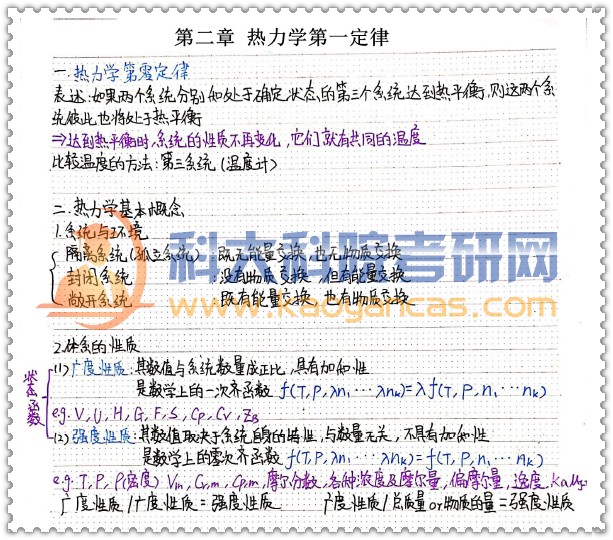 第二章 热力学第一定律
一.热力学第零定律
表述:如果两个系统分别和处于确定状态的第三个系统达到热平衡,则这两个系
统彼此也将处于热平衡
⇒达到热平衡时,系统的性质不再变化,它们就有共同的温度
比较温度的方法:第三系统(温度计)
二.热力学基本概念
1.系统与环境
隔离系统(孤立系统):既无能量交换,也无物质交换
封闭系统 :没有物质交换,但有能量交换
敞开系统 :既有能量交换,也有物质交换
科大科院考研网
www.kaogancas.com
2.体系的性质
状态函数
(1)广度性质:其数值与系统数量成正比,具有加和性
是数学上的一次齐函数 f(T,P,λn₁…λnₖ)=λf(T,P,n₁…nₖ)
e.g. V,U,H,G,F,S,Cp,Cv,
(2)强度性质:其数值取决于系统自身的特性,与数量无关,不具有加和性
是数学上的零次齐函数 f(T,P,λn₁…λnₖ)=f(T,P,n₁…nₖ)
e.g. T,P,ρ(密度) Vm,Cv,m,Cp,m,摩尔分数,各种浓度及摩尔量,偏摩尔量,逸度
广度性质/广度性质=强度性质 广度性质/总质量or物质的量=强度性质